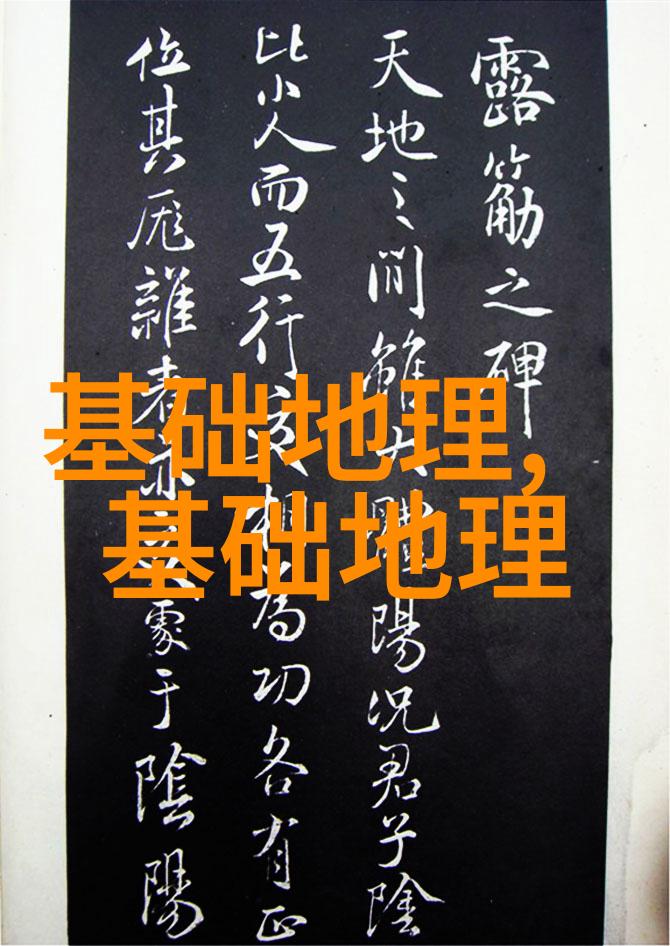 露筋之碑
天地之間雖大體陽况君子陰
比小人而五行交相為功各有正
位其厖雜者亦于陰陽
基础地理,
基础地理